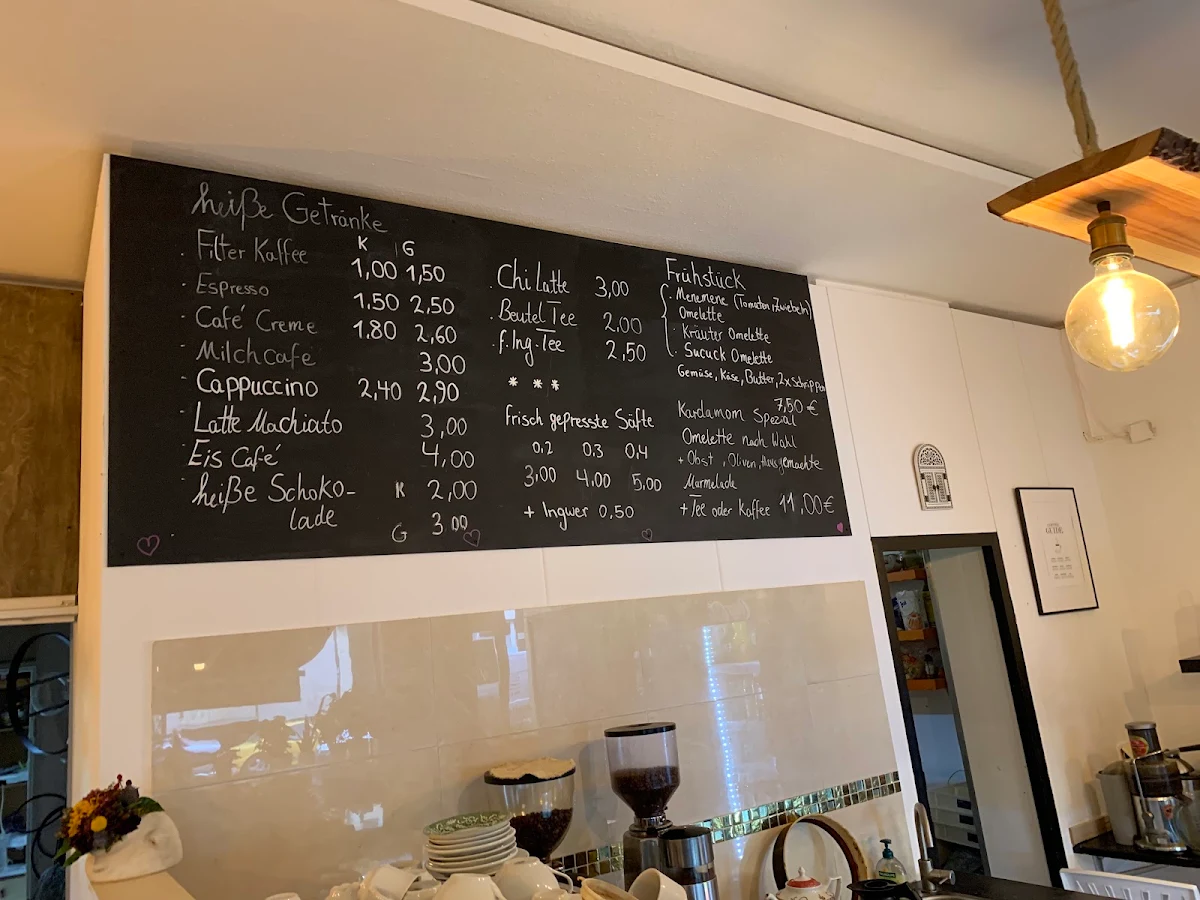 heiße Getränke
K G
· Filter Kaffee 1,00 1,50
· Espresso 1.50 2,50
· Café Creme 1.80 2,60
· Milchcafé 3,00
· Cappuccino 2,40 2,90
· Latte Machiato 3,00
· Eis Café 4,00
· heiße Schoko- K 2,00
lade G 3,00
· Chi Latte 3,00
· Beutel Tee 2,00
· f. Ing. Tee 2,50
* * *
Frisch gepresste Säfte
0,2 0,3 0,4
3,00 4,00 5,00
+ Ingwer 0,50
Frühstück
· Menemene (Tomaten, Zwiebeln)
Omelette
· Kräuter Omelette
· Sucuck Omelette
Gemüse, Käse, Butter, 2x Schrippen
7,50 €
Kardamom Spezial
Omelette nach Wahl
+ Obst, Oliven, Hausgemachte
Marmelade
+ Tee oder Kaffee 11,00 €